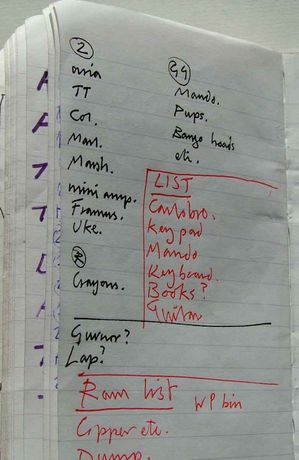 2
TT
Col.
Marl.
Marsh.
mini amp.
Framus.
Uke.
Crayons.
GG
Mando.
Pups.
Banjo heads
etc.
LIST
Carlsbro.
Key pad
Mando
Keyboard.
Books?
Guitar
Gurnor?
Lap?
Ram list
WP bin
Copper etc.
Dump.